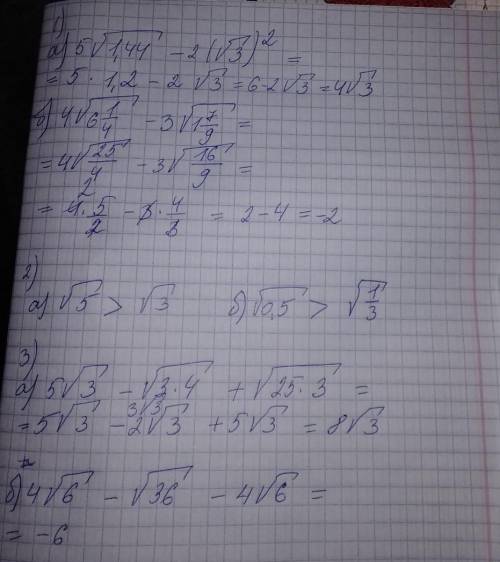 1)
а) 5√1,44 - 2(√3)² =
= 5 · 1,2 - 2√3 = 6-2√3 = 4√3
б) 4√6 1/4 - 3√1 7/9 =
= 4√25/4 - 3√16/9 =
2
= 4 · 5/2 - 3 · 4/3 = 2 - 4 = -2
2)
а) √5 > √3 б) √0,5 > √1/3
3)
а) 5√3 - √3·4 + √25·3 =
3√3
= 5√3 - 2√3 + 5√3 = 8√3
б) 4√6 - √36 - 4√6 =
= -6